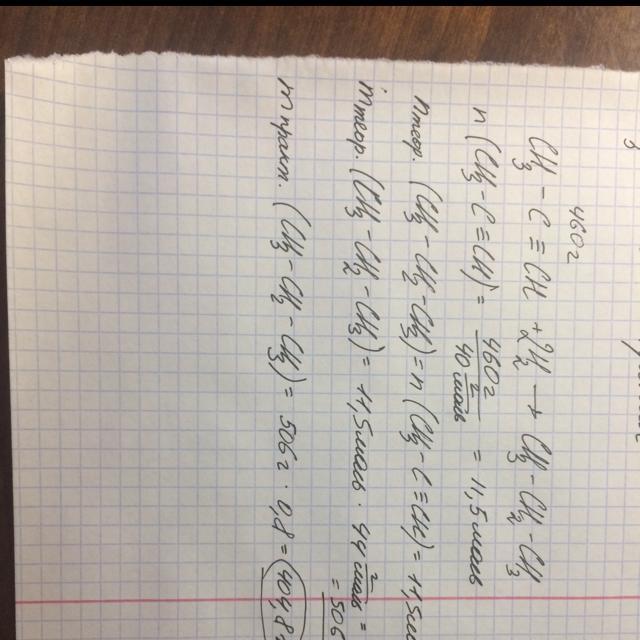 460 г
CH₃ – C ≡ CH + 2H₂ → CH₃ – CH₂ – CH₃
n (CH₃ – C ≡ CH) = 460 г / 40 г/моль = 11,5 моль
nтеор. (CH₃ – CH₂ – CH₃) = n (CH₃ – C ≡ CH) = 11,5 мо
mтеор. (CH₃ – CH₂ – CH₃) = 11,5 моль · 44 г/моль =
= 506
mпракт. (CH₃ – CH₂ – CH₃) = 506 г · 0,8 = 404,8